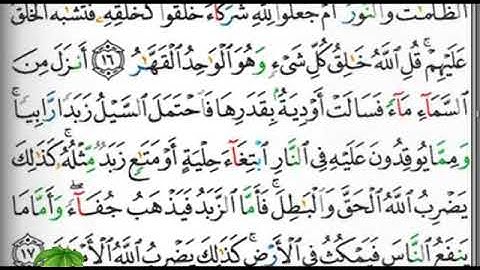 الظُّلُمَـٰتُ وَالنُّورُ أَمْ جَعَلُوا لِلَّهِ شُرَكَآءَ خَلَقُوا كَخَلْقِهِ فَتَشَـٰبَهَ الْخَلْقُ
عَلَيْهِمْ ۚ قُلِ اللَّهُ خَـٰلِقُ كُلِّ شَىْءٍ وَهُوَ الْوَٰحِدُ الْقَهَّـٰرُ ١٦ أَنزَلَ مِنَ
السَّمَآءِ مَآءً فَسَالَتْ أَوْدِيَةٌۢ بِقَدَرِهَا فَاحْتَمَلَ السَّيْلُ زَبَدًا رَّابِيًا ۚ
وَمِمَّا يُوقِدُونَ عَلَيْهِ فِى النَّارِ ابْتِغَآءَ حِلْيَةٍ أَوْ مَتَـٰعٍ زَبَدٌ مِّثْلُهُ ۚ كَذَٰلِكَ
يَضْرِبُ اللَّهُ الْحَقَّ وَالْبَـٰطِلَ ۚ فَأَمَّا الزَّبَدُ فَيَذْهَبُ جُفَآءً ۖ وَأَمَّا مَا
يَنفَعُ النَّاسَ فَيَمْكُثُ فِى الْأَرْضِ ۚ كَذَٰلِكَ يَضْرِبُ اللَّهُ الْأَمْثَالَ ١٧